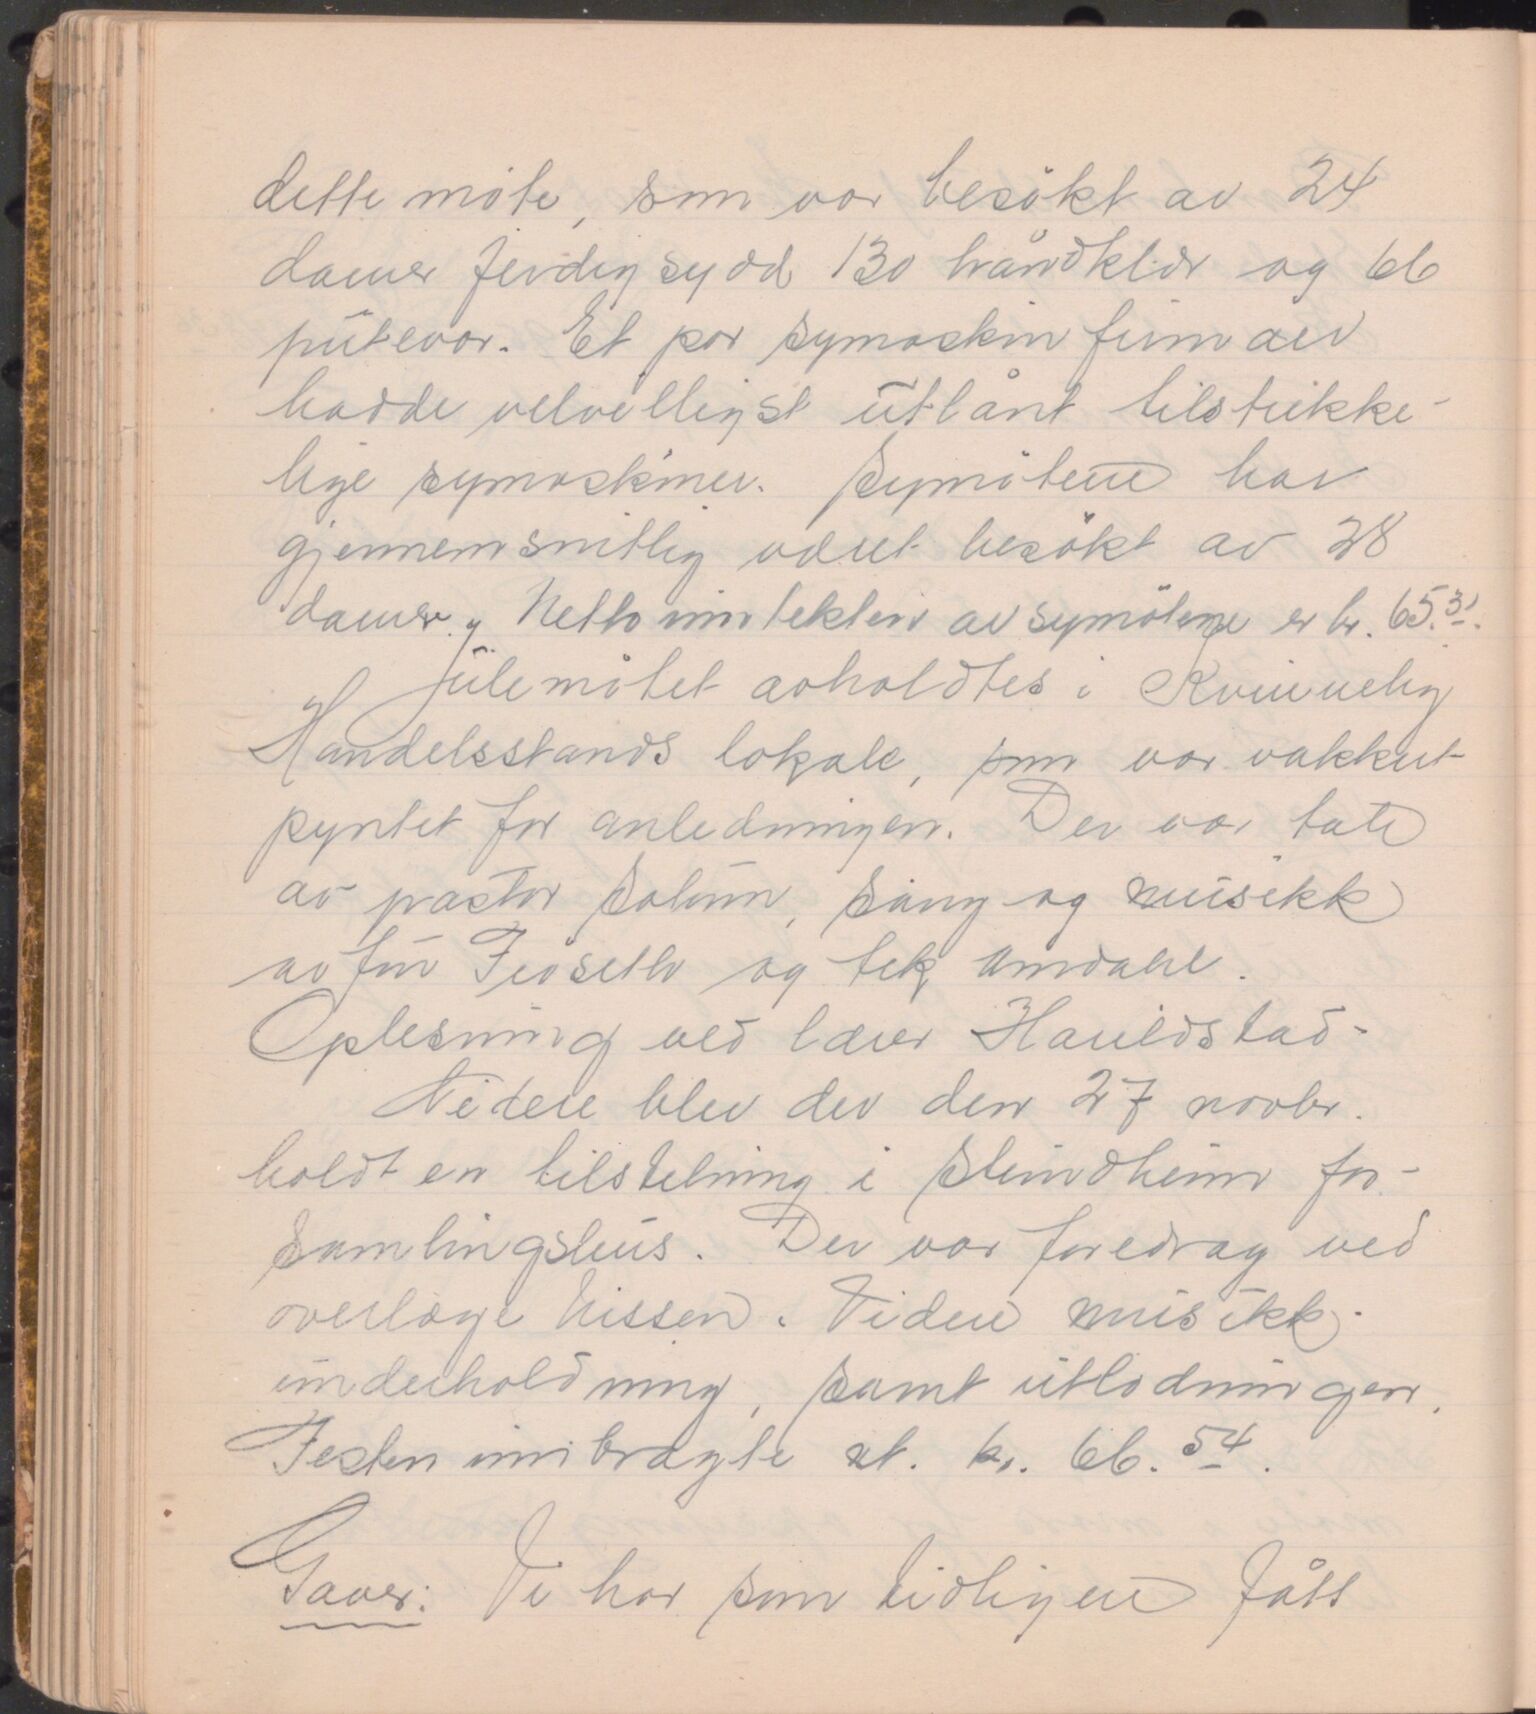 dette møte, som var besøkt av 24
damer ferdigsydd 130 håndklær og 66
putevar. Et par symaskinfirmaer
hadde velvilligst utlånt tilstrekke-
lige symaskiner. Symøtene har
gjennemsnitlig været besøkt av 28
damer. Netto inntekten av symøtene er kr. 65.31.
Julemøtet avholdtes i Kvinnelig
Handelsstands lokale, som var vakkert
pyntet for anledningen. Der var tale
av pastor Solum, sang og musikk
av fru Fioseth og frk Amdahl.
Oplesning ved lærer Haueldstad.
Videre blev der den 27 novbr.
holdt en tilstelning i Slindheim for-
samlingshus. Der var foredrag ved
overlæge Nissen. Videre musikk-
underholdning, samt utlodninger.
Festen innbragte nt. kr. 66.54.
Gaver: Vi har som tidligere fått